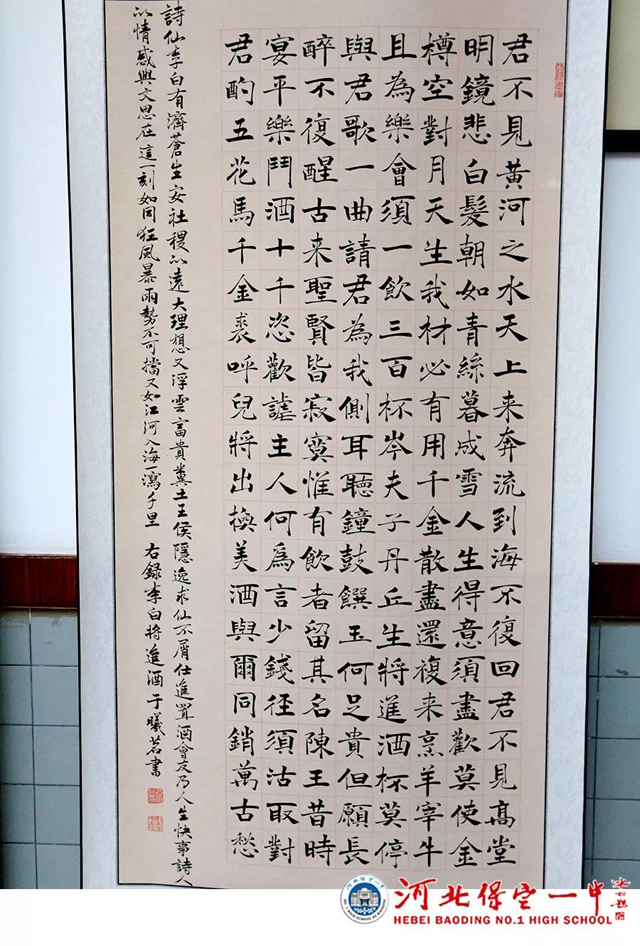 君不見黃河之水天上来奔流到海不復回君不見髙堂
明鏡悲白髮朝如青絲暮成雪人生得意須盡歡莫使金
樽空對月天生我材必有用千金散盡還複来烹羊宰牛
且為樂會須一飲三百杯岑夫子丹丘生將進酒杯莫停
與君歌一曲請君為我側耳聽鐘鼓饌玉何足貴但願長
醉不復醒古来聖賢皆寂寞惟有飲者留其名陳王昔時
宴平樂鬥酒十千恣歡謔主人何為言少錢径須沽取對
君酌五花馬千金裘呼兒將出換美酒與爾同銷萬古愁
詩仙李白有濟蒼生安社稷以遠大理想又浮雲富貴糞土王侯隱逸求仙不屑仕進置酒會友乃人生快事詩人
以情感與文思在這一刻如同狂風暴雨勢不可擋又如江河入海一瀉千里 右錄李白將進酒于曦茗書
河北保定一中
HEBEI BAODING NO.1 HIGH SCHOOL